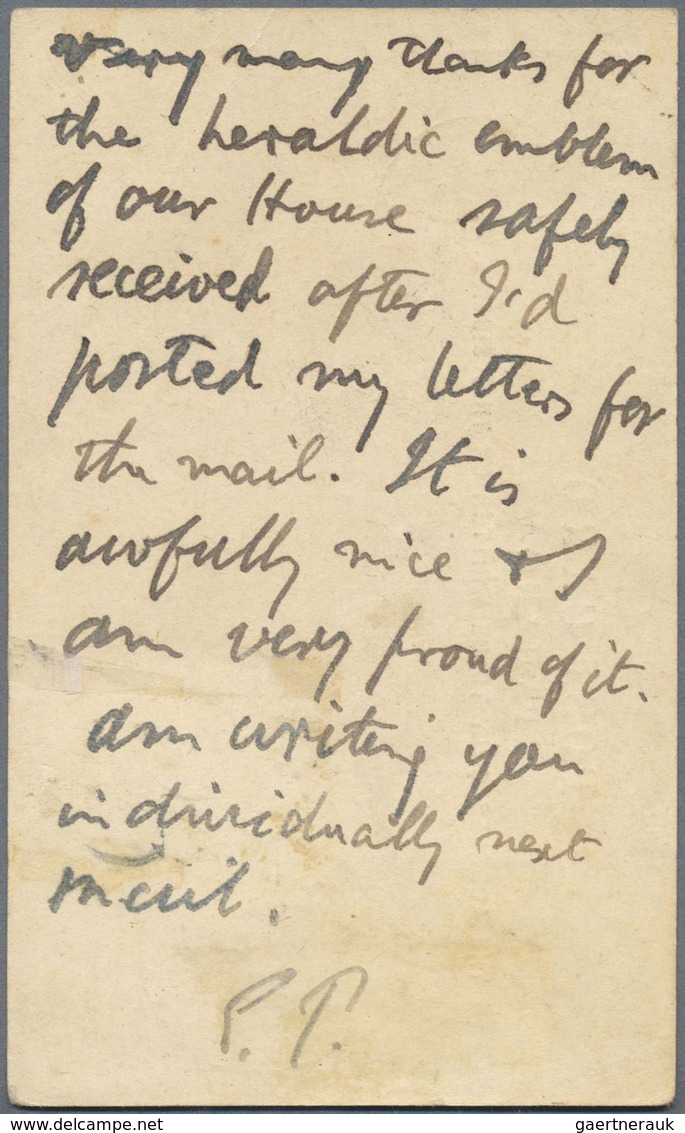 very many thanks for
the heraldic emblem
of our House safely
received after I'd
posted my letters for
the mail. It is
awfully nice & I
am very proud of it.
am writing you
individually next
mail.
P.T.
www.delcampe.net
gaertnerauk